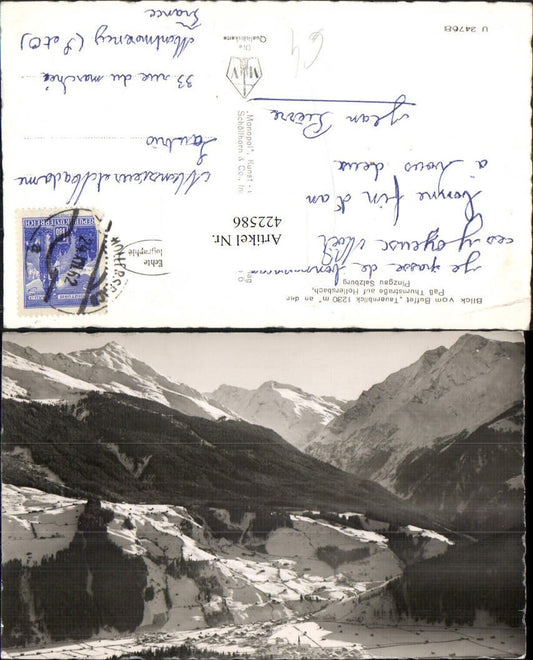 U 2476B
Blick vom Buffet „Tauernblick 1230 m" an der
Paß Thurnstraße auf Hollersbach,
Pinzgau Salzburg
je passe de bonnes vacances
ces joyeuse Noël
bonne fin d'an
à vous deux
Jean Pierre
„Monopol", Kunst -
Schöllhorn & Co., In
Die
Qualitätskarte
Echte
tographie
Artikel Nr.
422586
REPUBLIK ÖSTERREICH
Monsieur et Madame
33 rue du marché
Montmorency (S et O)
France